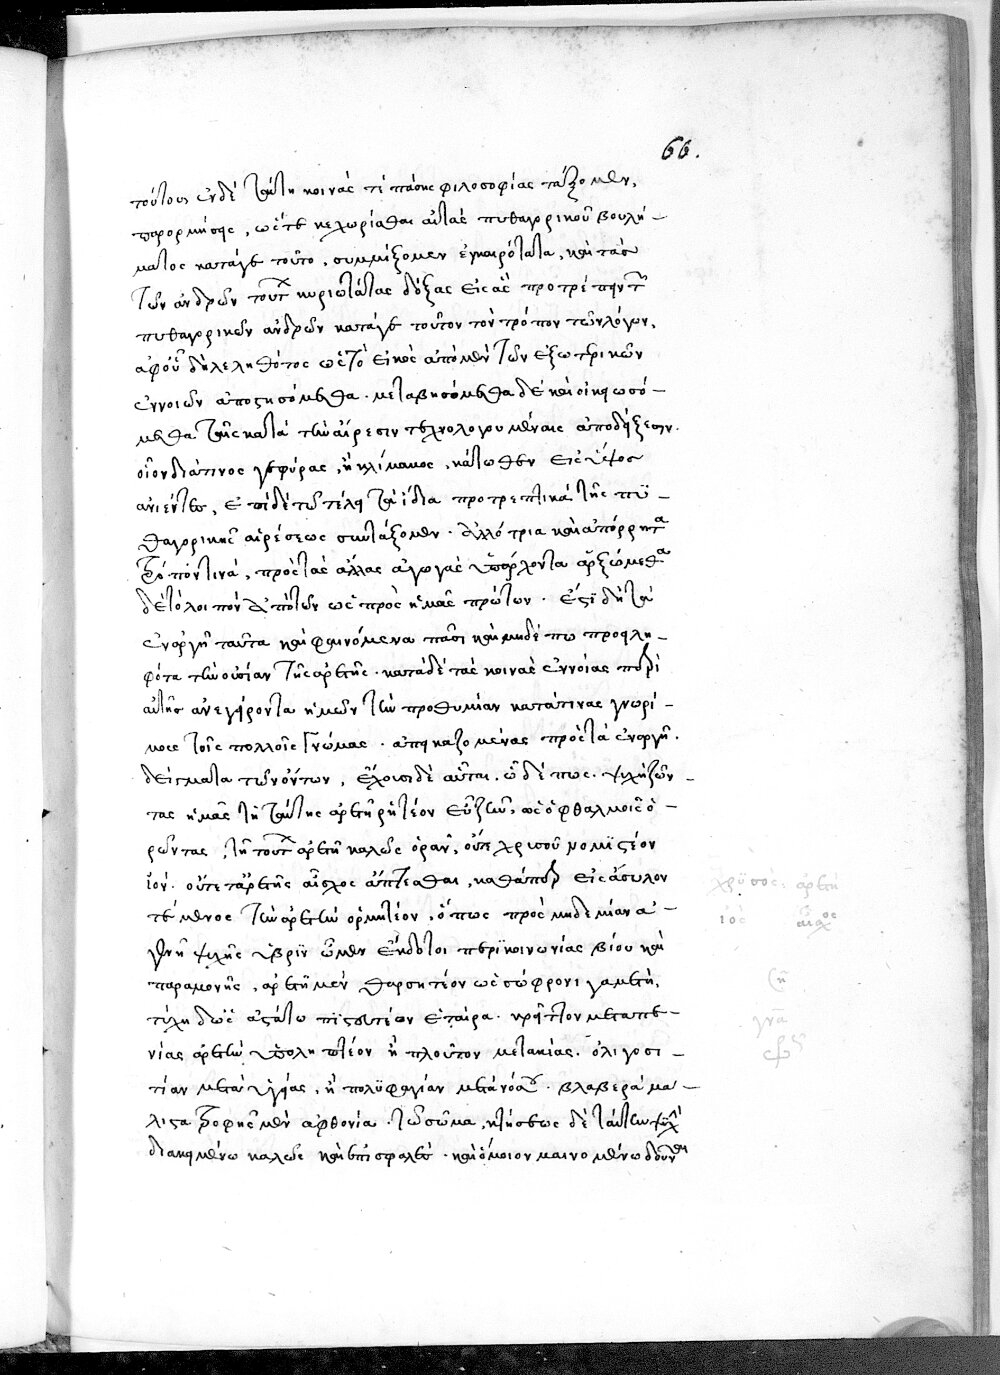 66.
τούτους ἐν δὲ ταύτη κοινὰς τὲ πάσης φιλοσοφίας τάξομεν,
παρορμήσεις, ὥστε κεχωρίσθαι αὐτὰς πυθαγορικοῦ βουλή-
ματος κατά γε τοῦτο, συμμίξομεν ἐγκαιρότατα, καὶ τὰς
τῶν ἀνδρῶν τούτων κυριωτάτας δόξας εἰς ἃς προτρέπειν τῶν
πυθαγορικῶν ἀνδρῶν κατά γε τοῦτον τὸν τρόπον τῶν λόγων,
ἀφ' οὗ δὴ λεληθότος ὡς τὸ εἰκὸς ἀπὸ μὲν τῶν ἐξωτερικῶν
ἐννοιῶν ἀποστησόμεθα. μεταβησόμεθα δὲ καὶ οἰκειωσό-
μεθα ταῖς κατὰ τὴν αἵρεσιν τεχνολογουμέναις ἀποδείξεσιν.
οἷον διά τινος γεφύρας, ἢ κλίμακος, κάτωθεν εἰς ὕψος
ἀνιέντες, ἐπὶ δὲ τῶ τέλει τὰ ἴδια προτρεπτικὰ τῆς πυ-
θαγορικῆς αἱρέσεως συντάξομεν. ἀλλότρια καὶ ἀπόρρητα
τρόπόν τινά, πρὸς τὰς ἄλλας ἀγωγὰς ὑπάρχοντα ἀρξώμεθα
δὲ τὸ λοιπὸν ἀπὸ τῶν ὡς πρὸς ἡμᾶς πρώτων. ἔστι δὴ τὰ
ἐναργῆ ταῦτα καὶ φαινόμενα πᾶσι καὶ μηδέ πω προειλη-
φότα τὴν οὐσίαν τῆς ἀρετῆς. κατὰ δὲ τὰς κοινὰς ἐννοίας περὶ
αὐτῆς ἀνεγείροντα ἡμῶν τὴν προθυμίαν κατά τινας γνωρί-
μους τοῖς πολλοῖς γνώμας. ἀπεικαζομένας πρὸς τὰ ἐναργῆ.
δείγματα τῶν ὄντων, ἔχουσι δὲ αὗται. ὧδέ πως. ψυχῆ ζῶν-
τας ἡμᾶς τῆ ταύτης ἀρετῆ ῥητέον εὖ ζῆν, ὡς ὀφθαλμοῖς ὁ-
ρῶντας, τῆ τούτων ἀρετῆ καλῶς ὁρᾶν, οὔτε χρυσοῦ νομιστέον
ἰόν. οὔτε τ' ἀρετῆς αἶσχος ἅπτεσθαι, καθάπερ εἰς ἄσυλον
τέμενος τὴν ἀρετὴν ὁρμητέον, ὅπως πρὸς μηδεμίαν ἀ-
γεννῆ ψυχῆς ὕβριν ὦμεν ἔνδοτοι περὶ κοινωνίας βίου καὶ
παραμονῆς, ἀρετῆ μὲν θαρσητέον ὡς σώφρονι γαμετῆ,
τύχη δ' ὡς ἀστάτω πιστευτέον ἑταίρα. κρεῖττον μετὰ πε-
νίας ἀρετὴν ὑποληπτέον ἢ πλοῦτον μετὰ κακίας. ὀλιγοσι-
τίαν μετὰ ὑγείας, ἢ πολυφαγίαν μετὰ νόσου. βλαβερὰ μά-
λιστα τροφῆς μὲν ἀφθονία. τῶ σῶμα, κτήσεως δὲ ταύτην ψυχῆ
διακειμένω κακῶς καὶ ἐπισφαλὲς. καὶ ὅμοιον μαινομένω δοῦναι
χρυσός: ἀρετή
ἰός αἶσχος